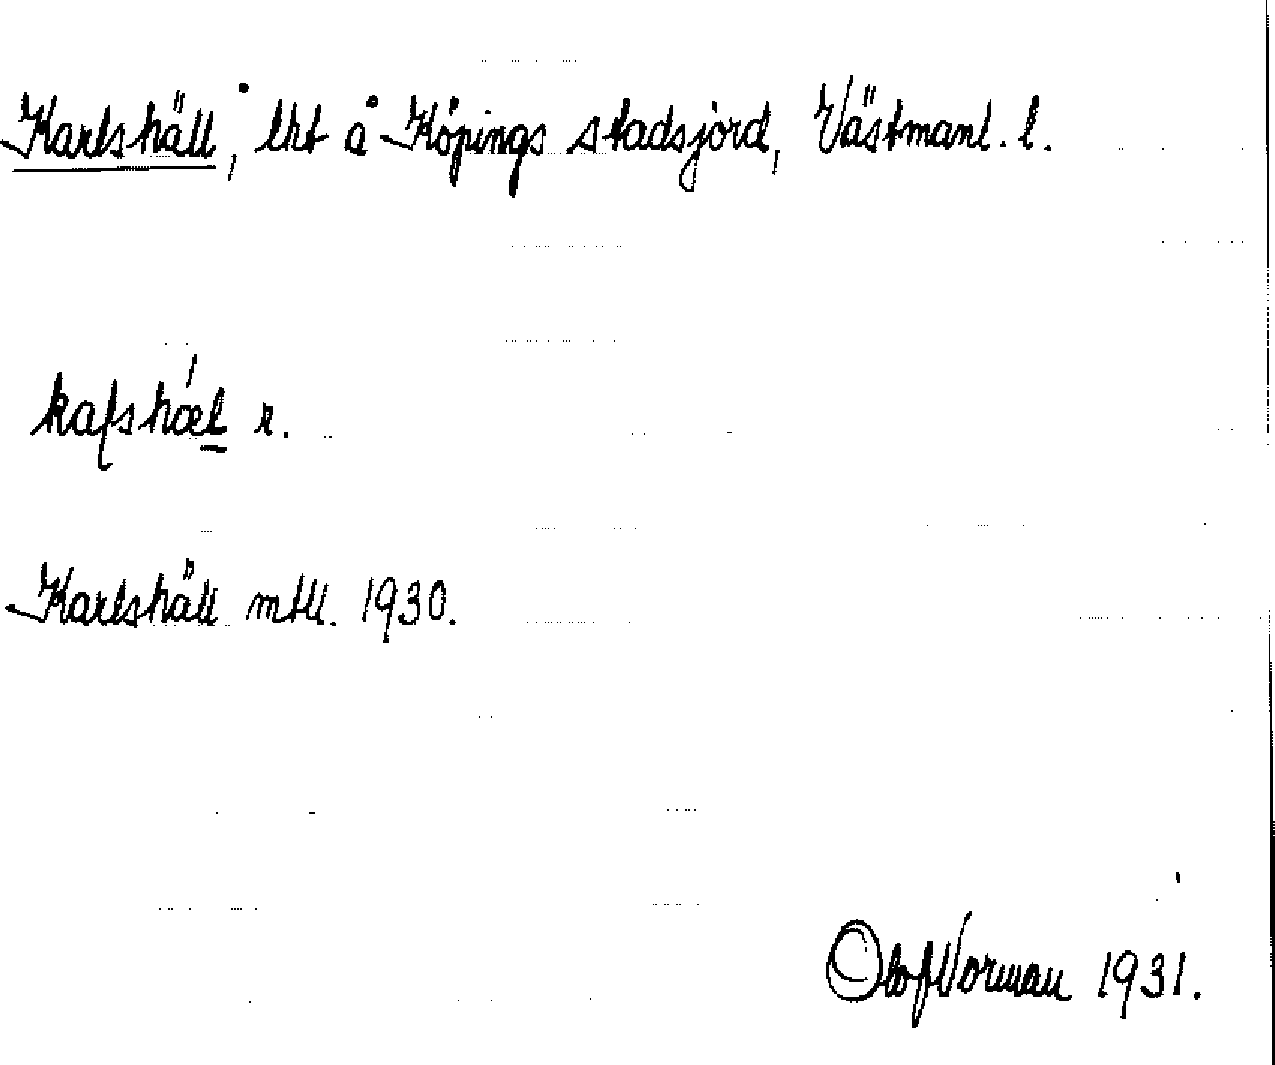 Karlshäll, lht å Köpings stadsjord, Västmanl. l.
kaʃshæ̀l r.
Karlshäll mtll. 1930.
Olof Vorman 1931.